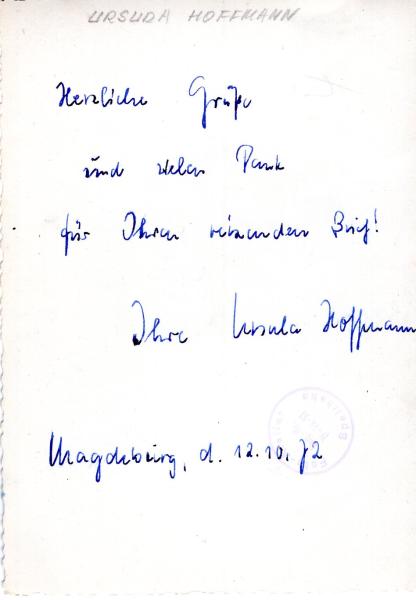 URSULA HOFFMANN
Herzliche Grüße
und vielen Dank
für Ihren reizenden Brief!
Ihre Ursula Hoffmann
Magdeburg, d. 12.10.72